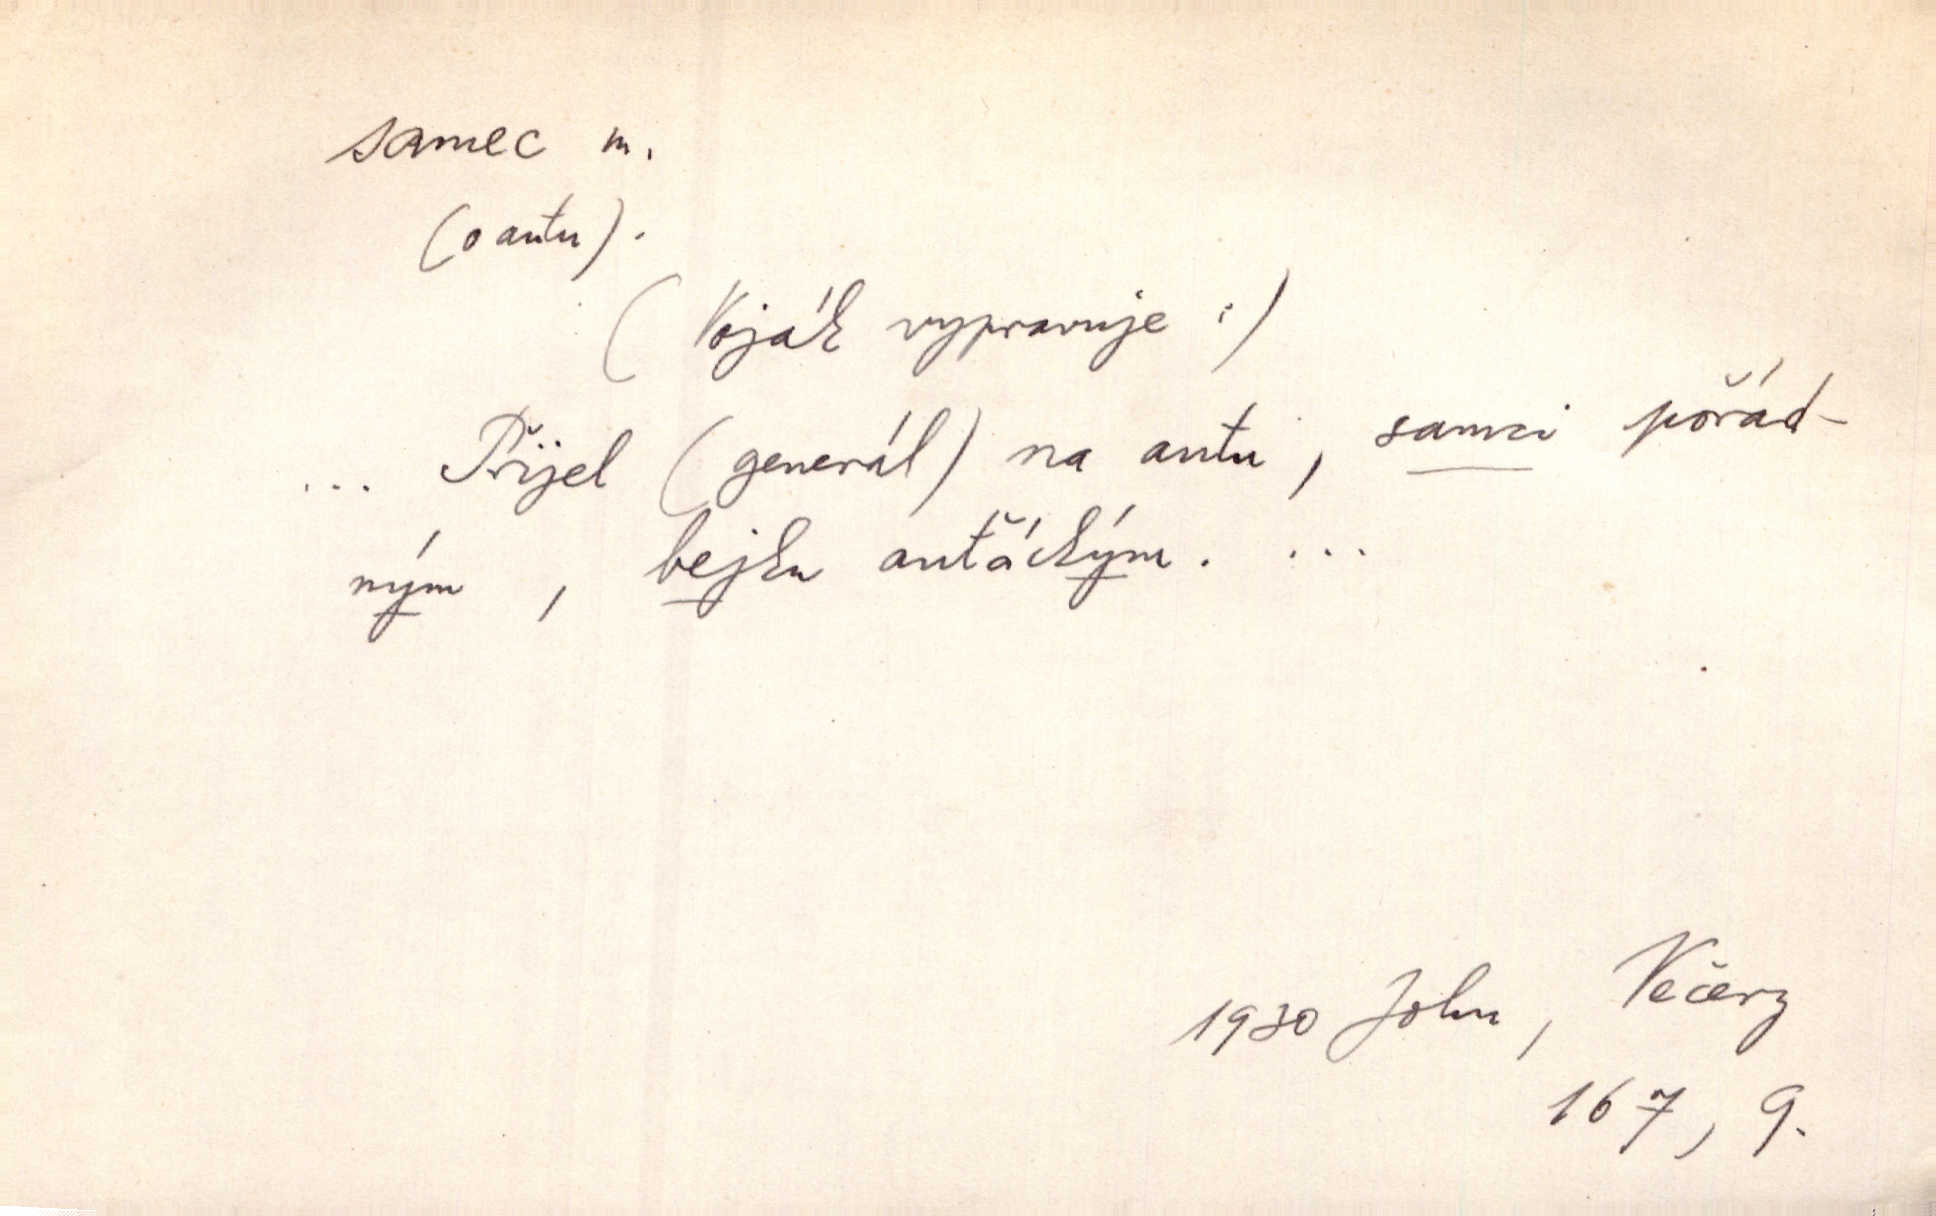 samec m.
(o autu).
(Voják vypravuje:)
... Přijel (generál) na autu, samci pořád-
ným, bejku auťáckým. ...
1930 John, Večery
167, 9.